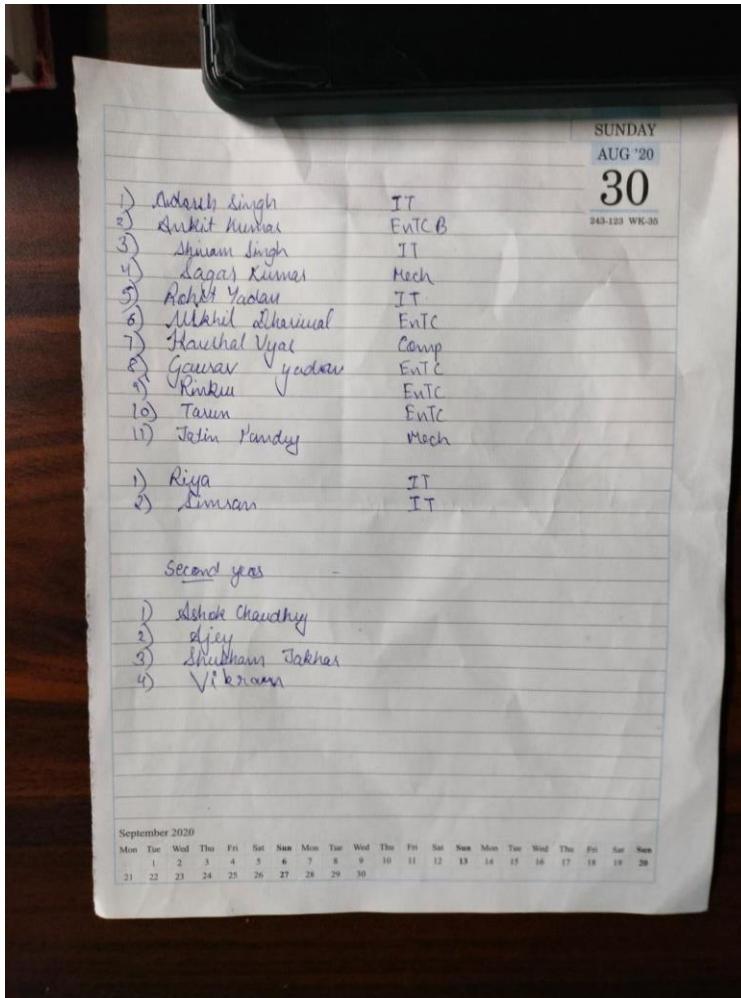 SUNDAY
AUG '20
30
243-123 WK-35
1) Adarsh Singh IT
2) Ankit Kumar EnTC B
3) Shivam Singh IT
4) Sagar Kumar Mech
5) Rohit Yadav IT
6) Nikhil Dhariwal EnTC
7) Kaushal Vyas Comp
8) Gaurav yadav EnTC
9) Rinku EnTC
10) Tarun EnTC
11) Jatin Pandey Mech
1) Riya IT
2) Simran IT
Second year
1) Ashok Chaudhry
2) Ajey
3) Shubham Jakhar
4) Vikram
September 2020
Mon Tue Wed Thu Fri Sat Sun Mon Tue Wed Thu Fri Sat Sun Mon Tue Wed Thu Fri Sat Sun
1 2 3 4 5 6 7 8 9 10 11 12 13 14 15 16 17 18 19 20
21 22 23 24 25 26 27 28 29 30